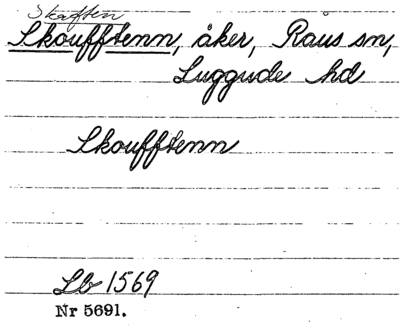 Skaften
Skoufftenn, åker, Raus sn,
Luggude hd
Skoufftenn
Lb 1569
Nr 5691.